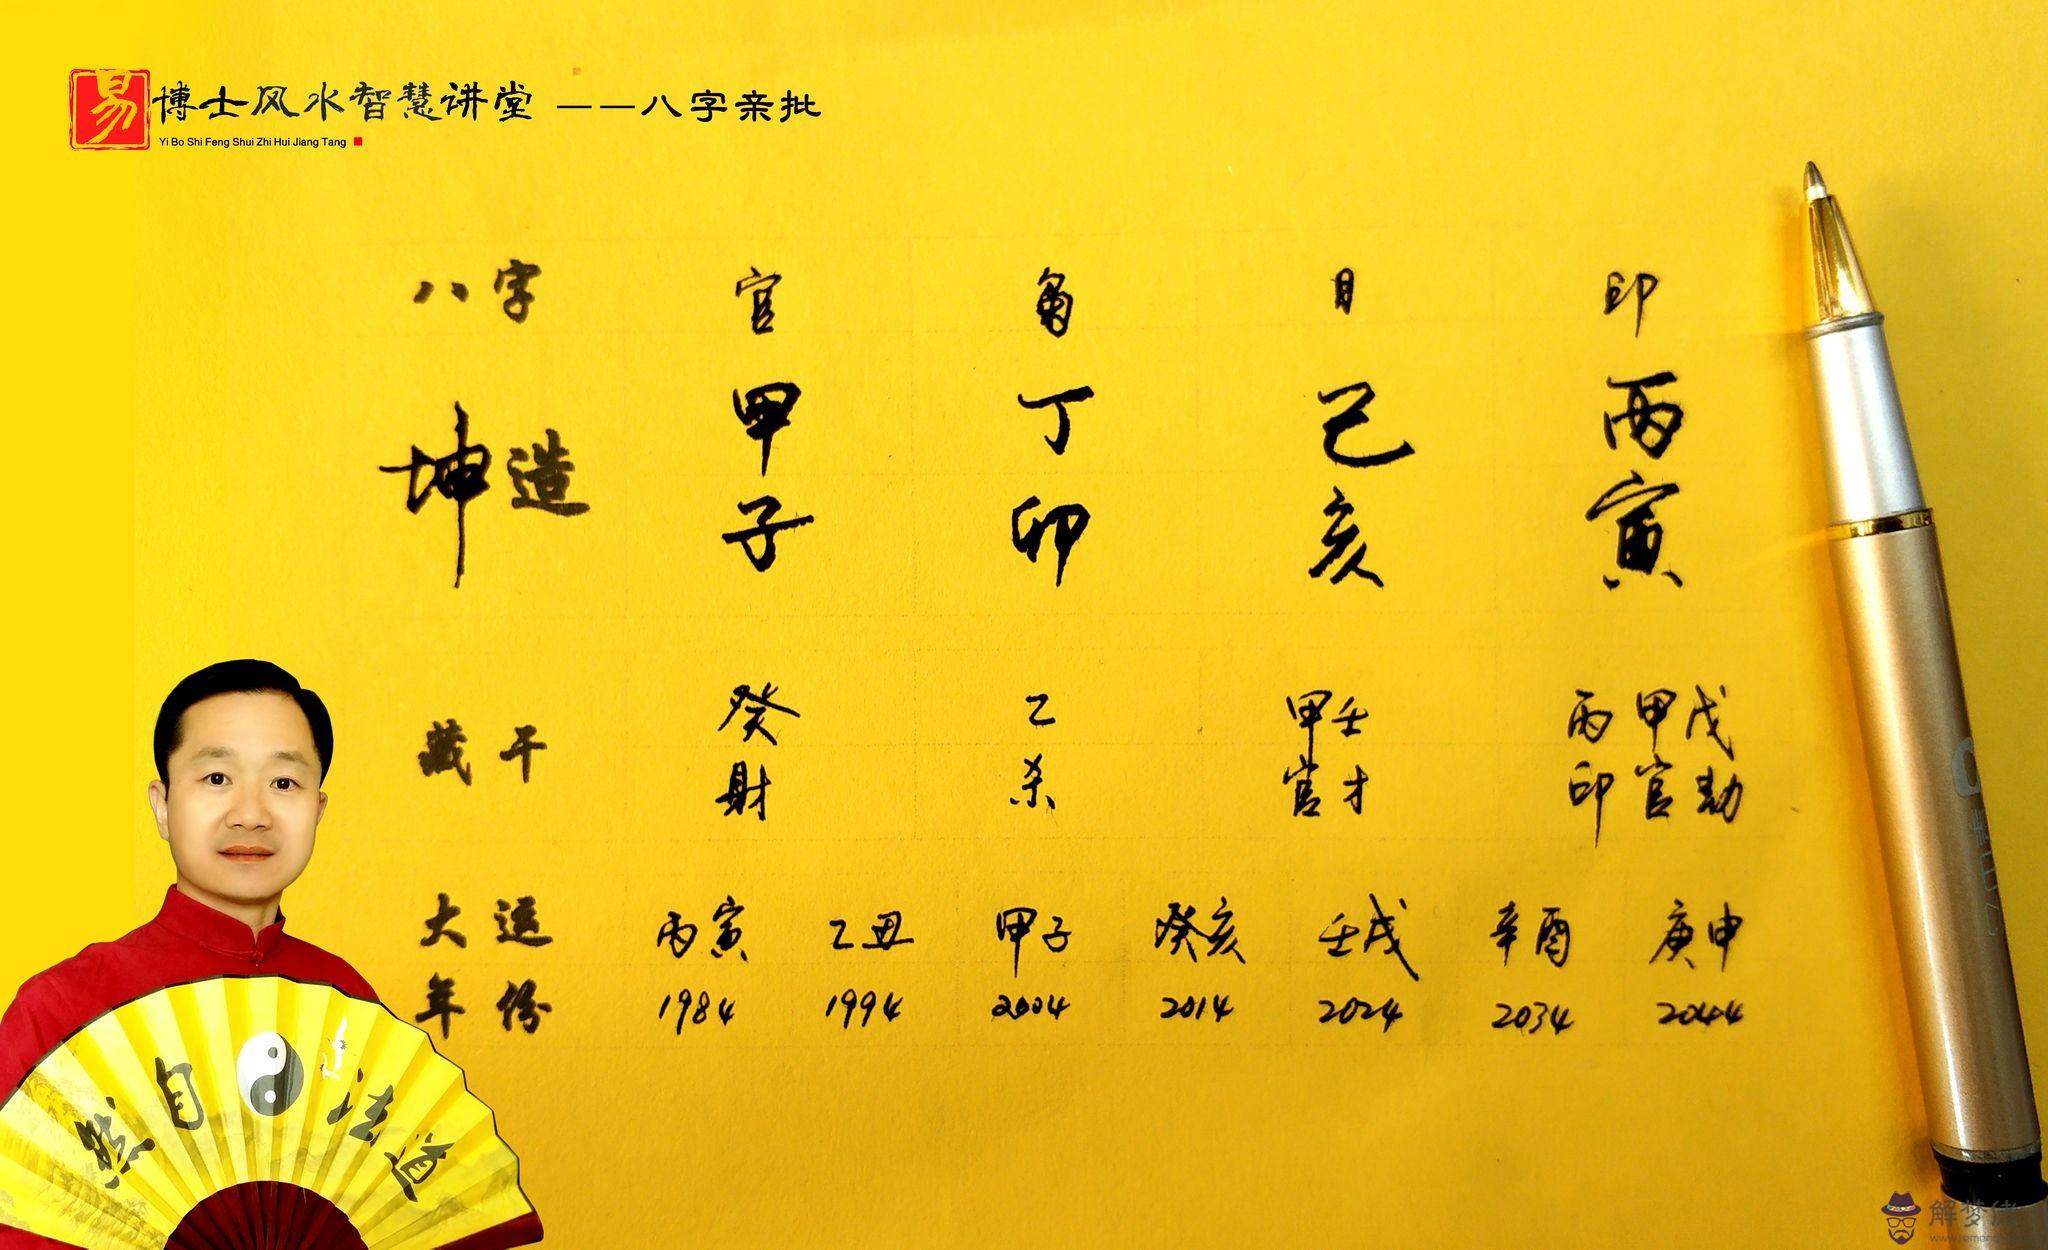 易 博士风水智慧讲堂 ——八字亲批
Yi Bo Shi Feng Shui Zhi Hui Jiang Tang
八字 官 日 印
坤造 甲子 丁卯 己亥 丙寅
藏干 癸 乙 甲壬 丙甲戊
財 杀 官才 印官劫
大运 丙寅 乙丑 甲子 癸亥 壬戌 辛酉 庚申
年份 1984 1994 2004 2014 2024 2034 2044
道法自然
解梦佬